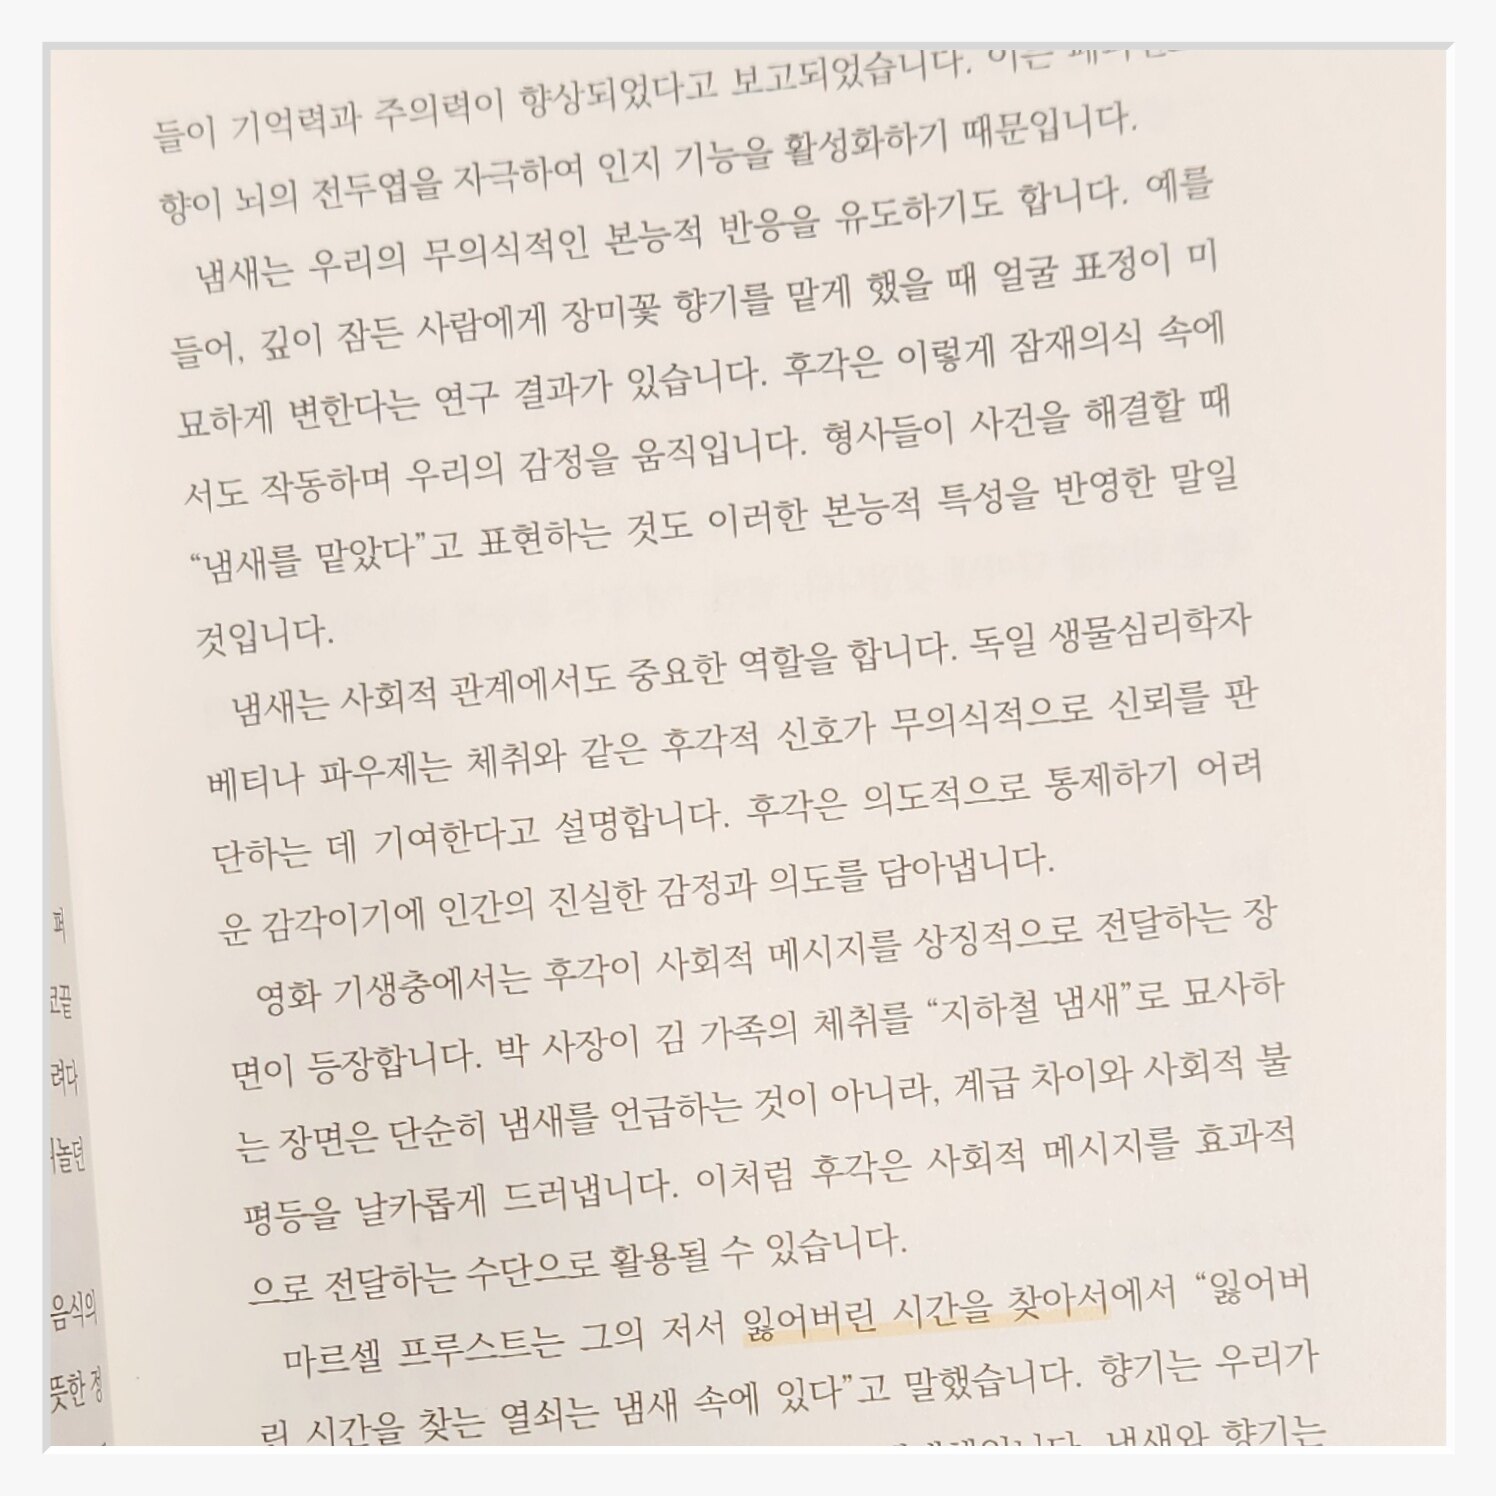 들이 기억력과 주의력이 향상되었다고 보고되었습니다. 이는
향이 뇌의 전두엽을 자극하여 인지 기능을 활성화하기 때문입니다.
냄새는 우리의 무의식적인 본능적 반응을 유도하기도 합니다. 예를
들어, 깊이 잠든 사람에게 장미꽃 향기를 맡게 했을 때 얼굴 표정이 미
묘하게 변한다는 연구 결과가 있습니다. 후각은 이렇게 잠재의식 속에
서도 작동하며 우리의 감정을 움직입니다. 형사들이 사건을 해결할 때
“냄새를 맡았다”고 표현하는 것도 이러한 본능적 특성을 반영한 말일
것입니다.
냄새는 사회적 관계에서도 중요한 역할을 합니다. 독일 생물심리학자
베티나 파우제는 체취와 같은 후각적 신호가 무의식적으로 신뢰를 판
단하는 데 기여한다고 설명합니다. 후각은 의도적으로 통제하기 어려
운 감각이기에 인간의 진실한 감정과 의도를 담아냅니다.
영화 기생충에서는 후각이 사회적 메시지를 상징적으로 전달하는 장
면이 등장합니다. 박 사장이 김 가족의 체취를 “지하철 냄새”로 묘사하
는 장면은 단순히 냄새를 언급하는 것이 아니라, 계급 차이와 사회적 불
평등을 날카롭게 드러냅니다. 이처럼 후각은 사회적 메시지를 효과적
으로 전달하는 수단으로 활용될 수 있습니다.
마르셀 프루스트는 그의 저서 잃어버린 시간을 찾아서에서 “잃어버
린 시간을 찾는 열쇠는 냄새 속에 있다”고 말했습니다. 향기는 우리가
냄새와 향기는
퍼
코끝
려다
놀던
음식의
뜻한 정